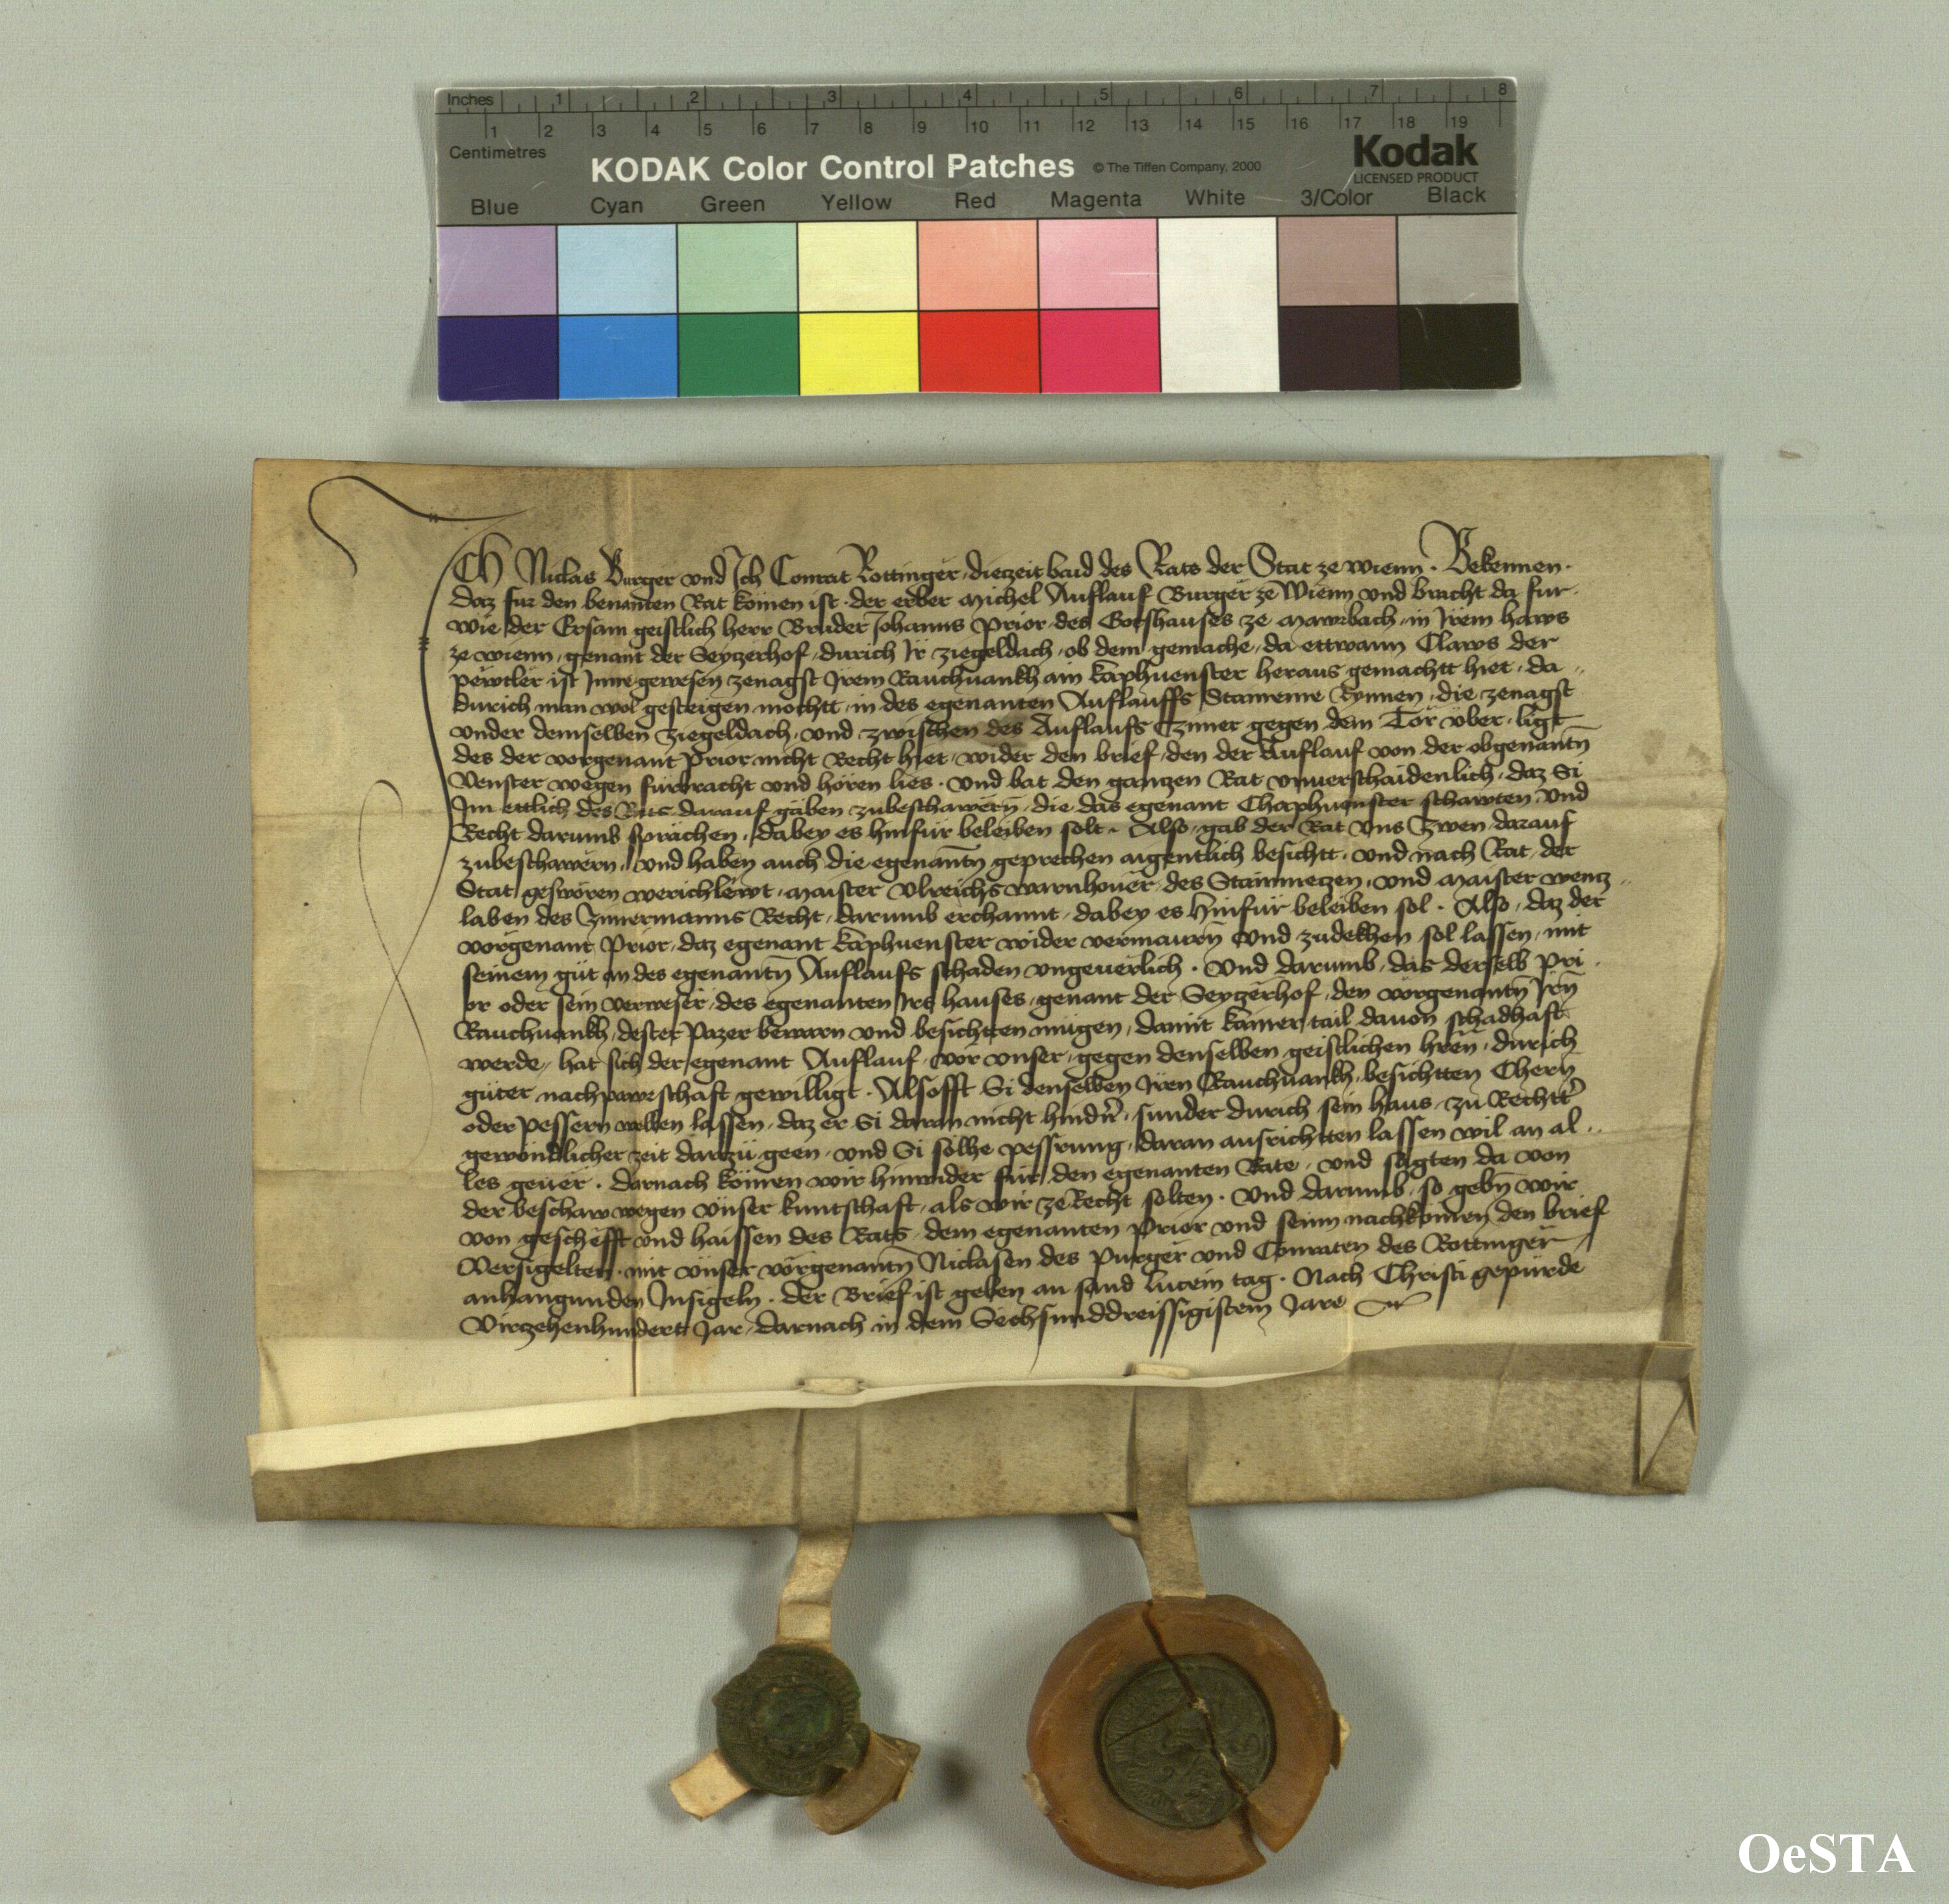 Inches 1 2 3 4 5 6 7 8
1 2 3 4 5 6 7 8 9 10 11 12 13 14 15 16 17 18 19
Centimetres
KODAK Color Control Patches © The Tiffen Company, 2000 Kodak
LICENSED PRODUCT
Blue Cyan Green Yellow Red Magenta White 3/Color Black
Ich Niclas Burger vnd Ich Conrat Rottinger, diezeit baid des Rats der Stat ze wienn. Bekennen.
daz fur den benanten Rat komen ist. der erber Michel Auflauf Burger ze Wienn vnd bracht da fur.
wie der Ersam geistlich herr Bruder Johanns Prior des Gotshauses ze Mawrbach, in Irem haws
ze wienn, genant der Seyczerhof, durich Ir ziegeldach, ob dem gemache, da ettwann Claws der
pewtler ist Inne gewesen zenagst Irem Rauchuankh ain kaphuenster heraus gemachtt hiet, da
durich man wol gesteigen mochtt, in des egenanten Auflauffs Staineine Rynnen, die zenagst
vnder demselben ziegeldach, vnd zwischen des Auflaufs Czimer gegen dem Tor vber, ligt
des der vorgenant Prior nicht Recht hiet, wider den brief, den der Auflauf von der obgenantn
Venster wegen furbracht vnd horen lies. vnd bat den ganczen Rat vnuerschaidenlich, daz Si
Im ettlich des Rats darauf gaben zubeschawern, die das egenant Chaphuenster schawten, vnd
Recht darumb sprachen, dabey es hinfur beleiben solt. Also gab der Rat vns zwen darauf
zubeschawern, vnd haben auch die egenantn geprechen aigentlich besichtt, vnd nach Rat, der
Stat gesworen werichlewt, maister Vlreichs warnhouer des Stainmeczen, vnd maister wencz
laben des Zimermanns Recht, darumb erchannt, dabey es hinfur beleiben sol. Also, daz der
vorgenant Prior, daz egenant kaphuenster wider vermaurn vnd zudekhen sol lassen, mit
seinem gut an des egenantn Auflaufs schaden vngeuerlich. Vnd darumb, das derselb Pri
or oder sein verweser, des egenanten Irs hauses, genant der Seyczerhof, den vorgenantn Irn
Rauchuankh, dester pazer bewarn vnd besichtten mugen, damit kainer tail dauon schadhaft
werde, hat sich der egenant Auflauf, vor vnser, gegen denselben geistlichen hren, durich
guter nachpawrschaft gewilligt. Alsofft Si denselben Iren Rauchuankh, besichtten Chern
oder pessern wellen lassen, daz er Si daran nicht hindr, sunder durich sein haus, zu Rechttr
gewondlicher zeit darzu geen, vnd Si solhe pessrung, daran ausrichtten lassen wil an al
les geuer. Darnach komen wir hinwider fur, den egenanten Rate, vnd sagten da von
der beschaw wegen vnser kuntschaft, als wir ze Recht solten. Vnd darumb, so gebn wir
von geschefft vnd haissen des Rats, dem egenanten Prior vnd seinn nachkomen den brief
Versigelten, mit vnser vorgenantn Niclasen des Purger vnd Conraten des Rottinger
anhangunden Insigeln. Der Brief ist geben an sand Lucein tag. Nach Christi gepurde
Virczehenhundert Jar, darnach in dem Sechsunddreissigistem Jare
OeSTA